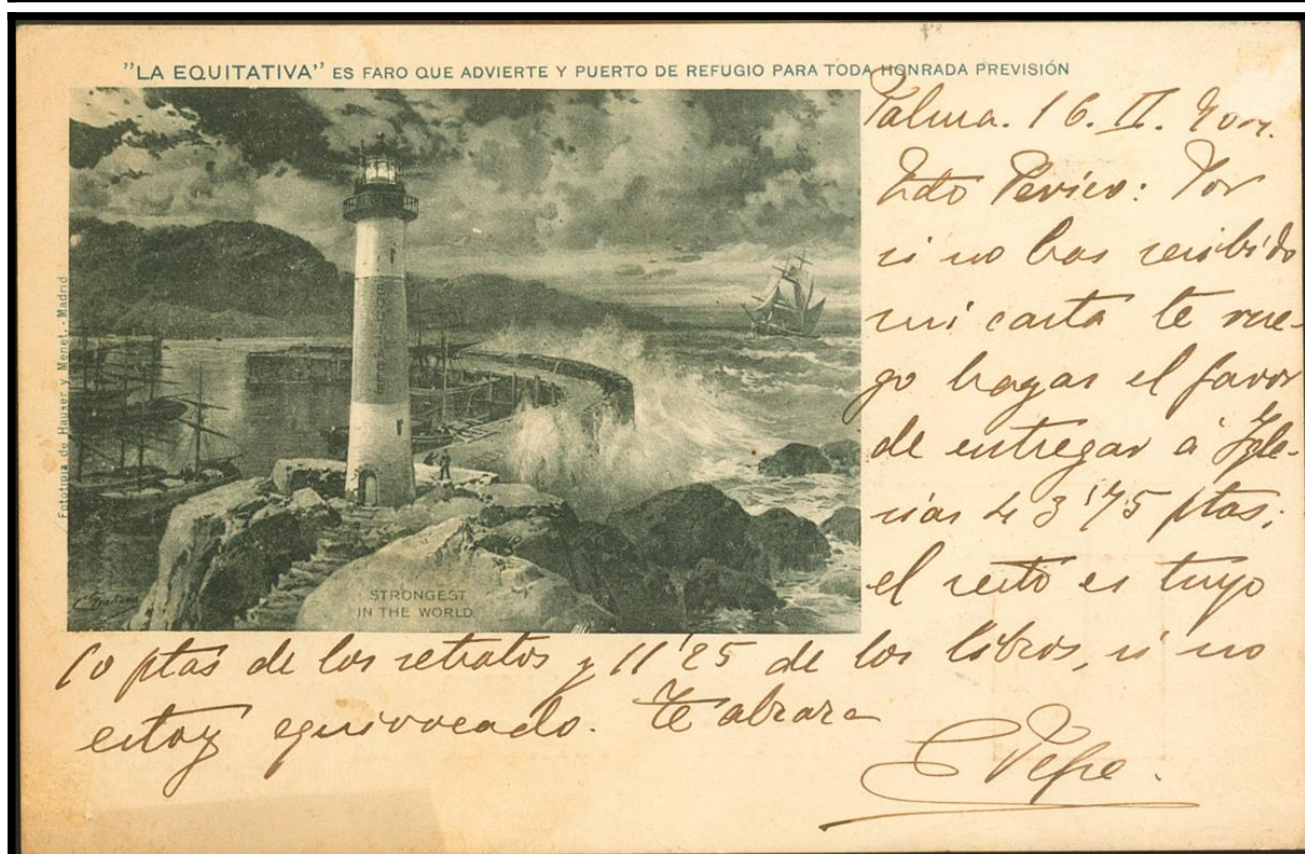 "LA EQUITATIVA" ES FARO QUE ADVIERTE Y PUERTO DE REFUGIO PARA TODA HONRADA PREVISIÓN
Fototipia de Hauser y Menet.-Madrid
STRONGEST
IN THE WORLD
Palma. 16. II.
Perico: Por
si no has recibido
mi carta te rue-
go hagas el favor
de entregar á Igle-
sias 43'75 ptas;
el resto es tuyo
10 ptas de los retratos y 11'25 de los libros, si no
estoy equivocado. Te abraza
Pepe.